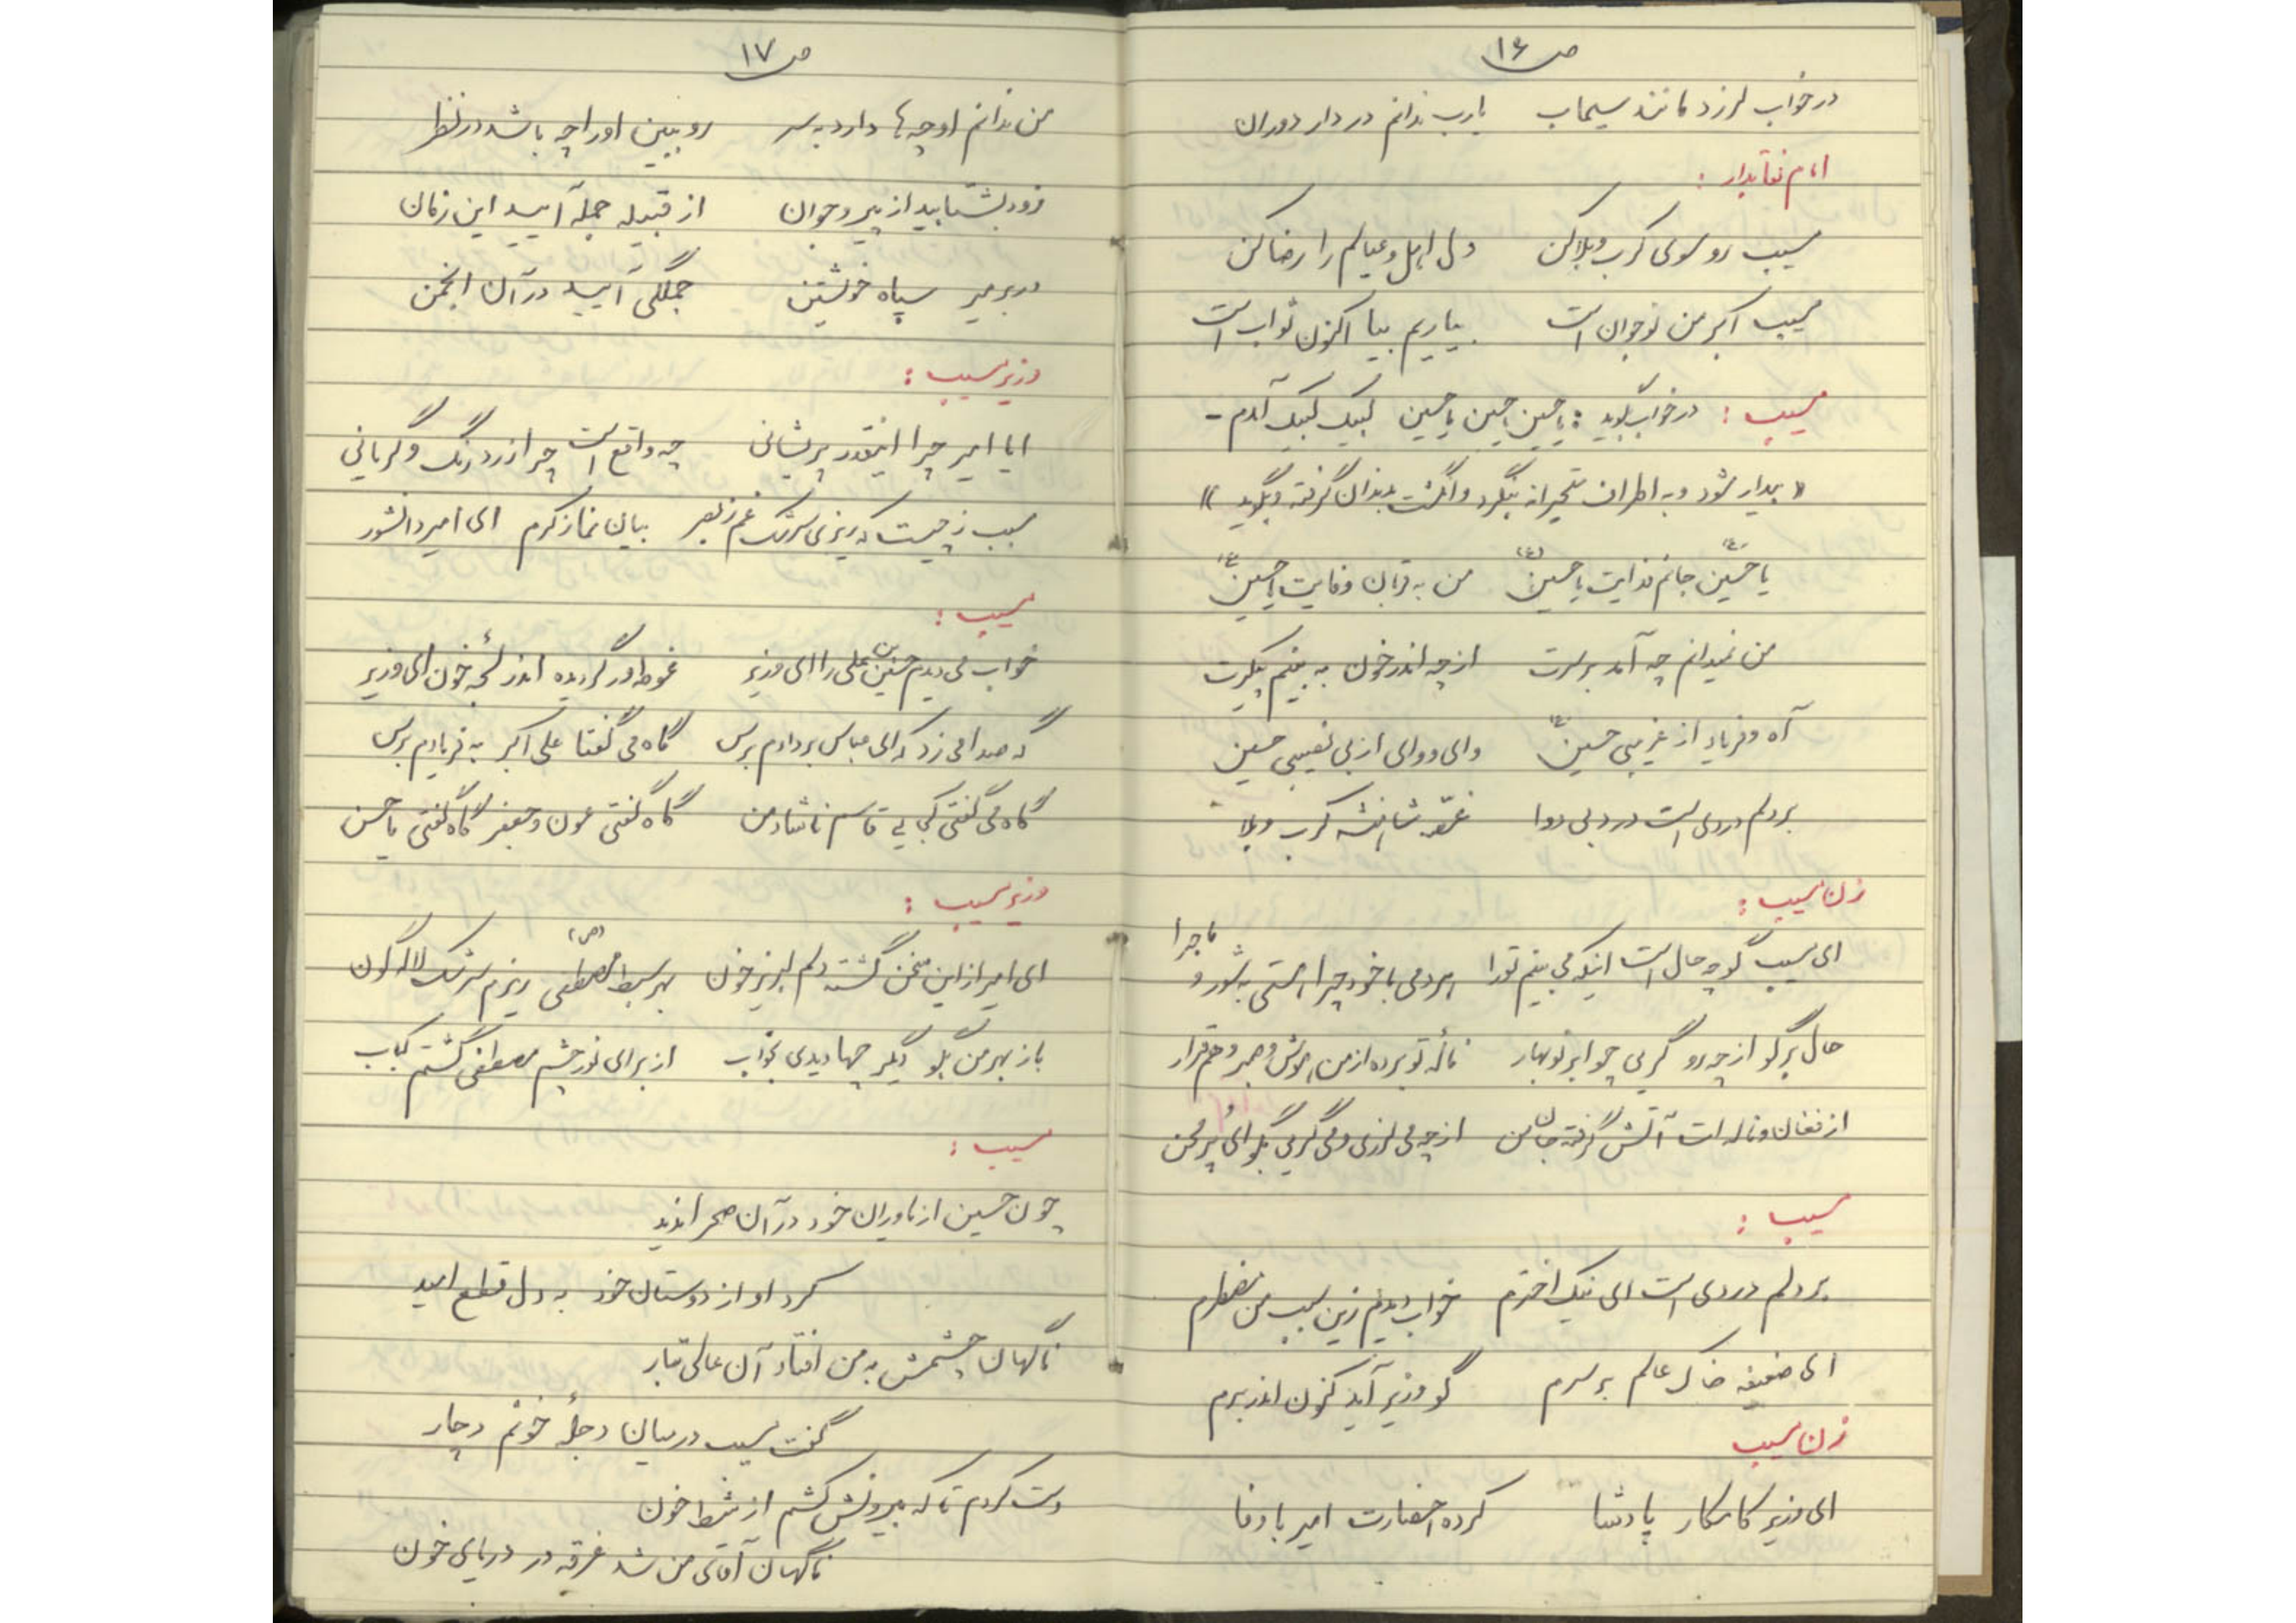 ص ۱۶
در خواب لرزد مانند سیماب یارب ندانم در دار دوران
امام نقابدار :
مسیب رو سوی کرب و بلا کن دل اهل و عیالم را رضا کن
مسیب اکبر من نوجوان است بیاریم بیا اکنون ثواب است
مسیب : در خواب گوید : یا حسین حسین یا حسین لبیک لبیک آمدم -
« بیدار شود و به اطراف متحیرانه بنگرد و انگشت بدندان گرفته و بگوید »
یا حسین (ع) جانم فدایت یا حسین (ع) من به قربان وفایت یا حسین (ع)
من نمیدانم چه آمد بر سرت از چه اندر خون به بینم پیکرت
آه و فریاد از غریبی حسین (ع) وای و وای از بی نصیبی حسین
بر دلم دردی است درد بی دوا غصّه شاهنشه کرب و بلا
زن مسیب :
ای مسیب گو چه حال است اینکه می بینم تو را هر دمی با خود چرا هستی به شور و ماجرا
حال برگو از چه رو گریی چو ابر نوبهار نالۀ تو برده از من هوش و صبر و هم قرار
از فغان و ناله ات آتش گرفته جان من از چه می لرزی و می گریی بگو ای پُر محن
مسیب :
بر دلم دردی است ای نیک اخترم خواب دیدم زین سبب من مضطرم
ای ضعیفه خاک عالم بر سرم گو وزیر آید کنون اندر برم
زن مسیب
ای وزیر کامکار پادشا کرده احضارت امیر باوفا
ص ۱۷
من ندانم او چه ها دارد به سر رو ببین او را چه باشد در نظر
زود بشتابید از پیر و جوان از قبیله جمله آیید این زمان
در بر میر سپاه خویشتن جملگی آیید در آن انجمن
وزیر مسیب :
ایا امیر چرا اینقدر پریشانی چه واقع است چرا زرد رنگ و گریانی
سبب ز چیست که ریزی سرشک غم ز بصر بیان نما ز کرم ای امیر دانشور
مسیب :
خواب می دیدم حسین بن علی را ای وزیر غوطه ور گردیده اندر لجّۀ خون ای وزیر
گه صدا می زد که ای عباس بر دادم برس گاه می گفتا علی اکبر به فریادم برس
گاه می گفتی کجایی قاسم ناشاد من گاه گفتی عون و جعفر گاه گفتی یا حسن
وزیر مسیب :
ای امیر از این سخن گشته دلم لبریز خون بهر سبط مصطفی (ص) ریزم سرشک لاله گون
باز بهر من بگو دیگر چها دیدی بخواب از برای نور چشم مصطفی گشتم کباب
مسیب :
چون حسین از یاوران خود در آن صحرا ندید
کرد او از دوستان خود به دل قطع امید
ناگهان چشمش به من افتاد آن عالی تبار
گفت مسیب در میان دجلۀ خونم دچار
دست کردم تا که بیرونش کشم از شط خون
ناگهان آقای من شد غرقه در دریای خون